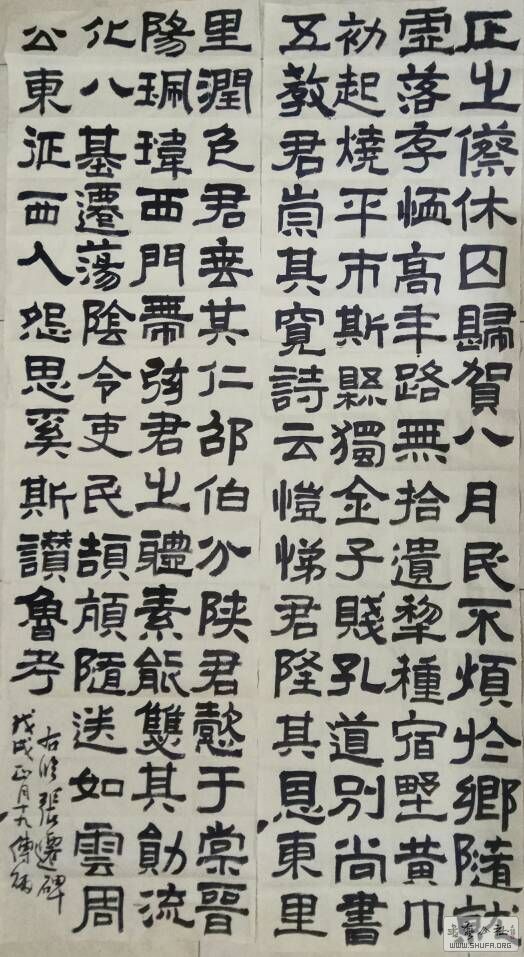 正之傺休囚歸賀八月民不煩於鄉隨就
虛落存恤高年路無拾遺犁種宿野黃巾
初起燒平市斯縣獨全子賤孔道別尚書
五教君崇其寬詩云愷悌君隆其恩東里
里潤色君垂其仁邵伯分陝君懿于棠晉
陽珮瑋西門帶弦君之體素能雙其勛流
化八基遷蕩陰令吏民頡頏隨送如雲周
公東征西人怨思奚斯讚魯考
右臨張遷碑
戊戌正月十九傅
WWW.SHUFA.ORG